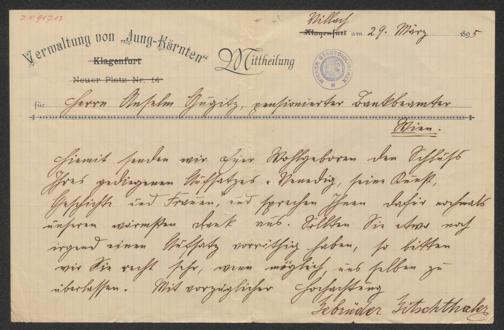 I.N. 95213
Verwaltung von „Jung-Kärnten“
Klagenfurt
Neuer Platz Nr. 14
Mittheilung
Villach
Klagenfurt am 29. März 1895
für Herrn Anselm Gugitz, pensionierter Bankbeamter
Wien.
Hiemit senden wir Euer Wohlgeboren den Schluß
Ihres gediegenen Aufsatzes „Venedig, seine Kunst,
Geschichte und Frauen, und sprechen Ihnen dafür nochmals
unseren wärmsten Dank aus. Sollten Sie etwa noch
irgend einen Aufsatz vorräthig haben, so bitten
wir Sie recht sehr, wenn möglich, uns selben zu
überlassen. Mit vorzüglicher Hochachtung
Gebrüder Gitschthaler